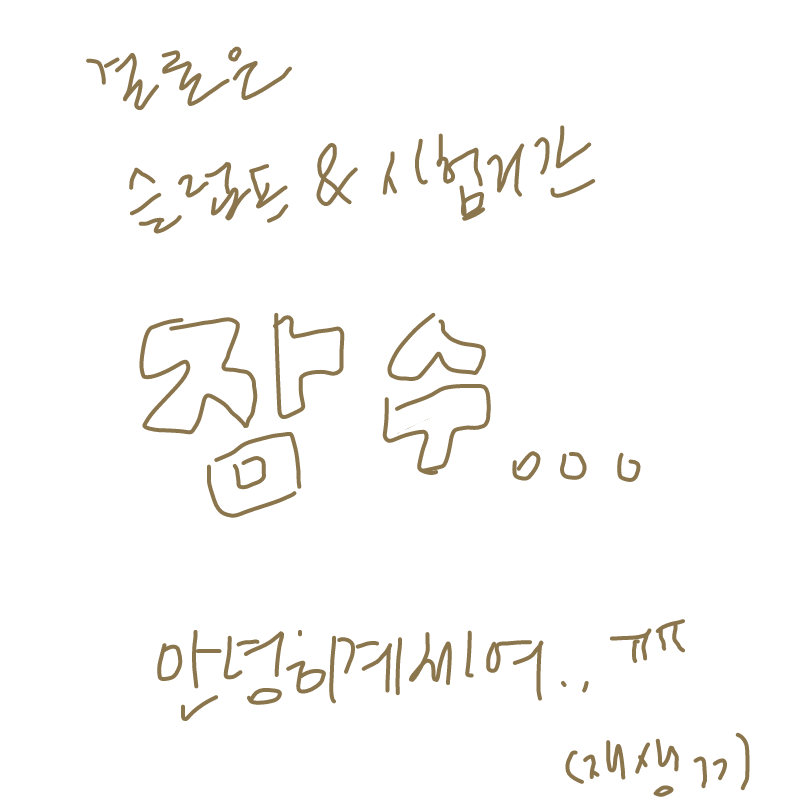 결론은
슬럼프 & 시험기간
잠수...
안녕히계세여.., ㅠㅠ
(재생ㄲ)